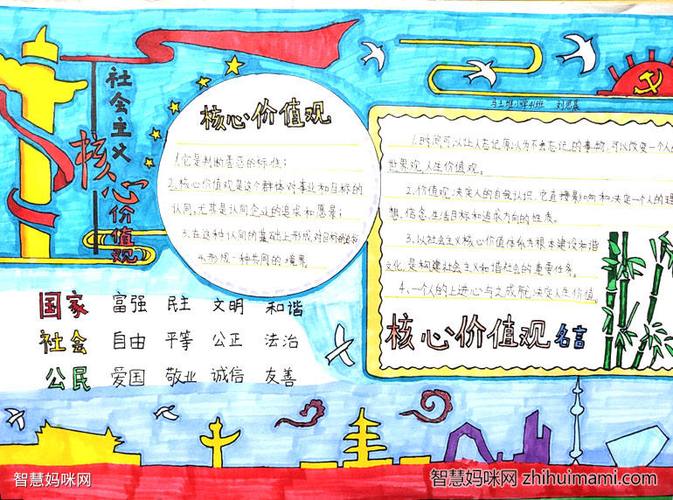 社会主义
核心
价值观
核心价值观
1.它是判断善恶的标准;
2.核心价值观是这个群体对事业和目标的
认同,尤其是认同企业的追求和愿景;
3.在这种认同的基础上形成对目标的追求
4.形成一种共同的境界
国家 富强 民主 文明 和谐
社会 自由 平等 公正 法治
公民 爱国 敬业 诚信 友善
1.时间可以让人忘记原以为不会忘记的事物,可以改变一个人的
世界观,人生价值观。
2.价值观决定人的自我认识,它直接影响和决定一个人的理
想、信念、生活目标和追求方向的性质。
3.以社会主义核心价值体系为根本建设和谐
文化,是构建社会主义和谐社会的重要任务。
4.一个人的上进心与之成就,决定人生价值。
核心价值观名言
智慧妈咪网
智慧妈咪网 zhihuimami.com